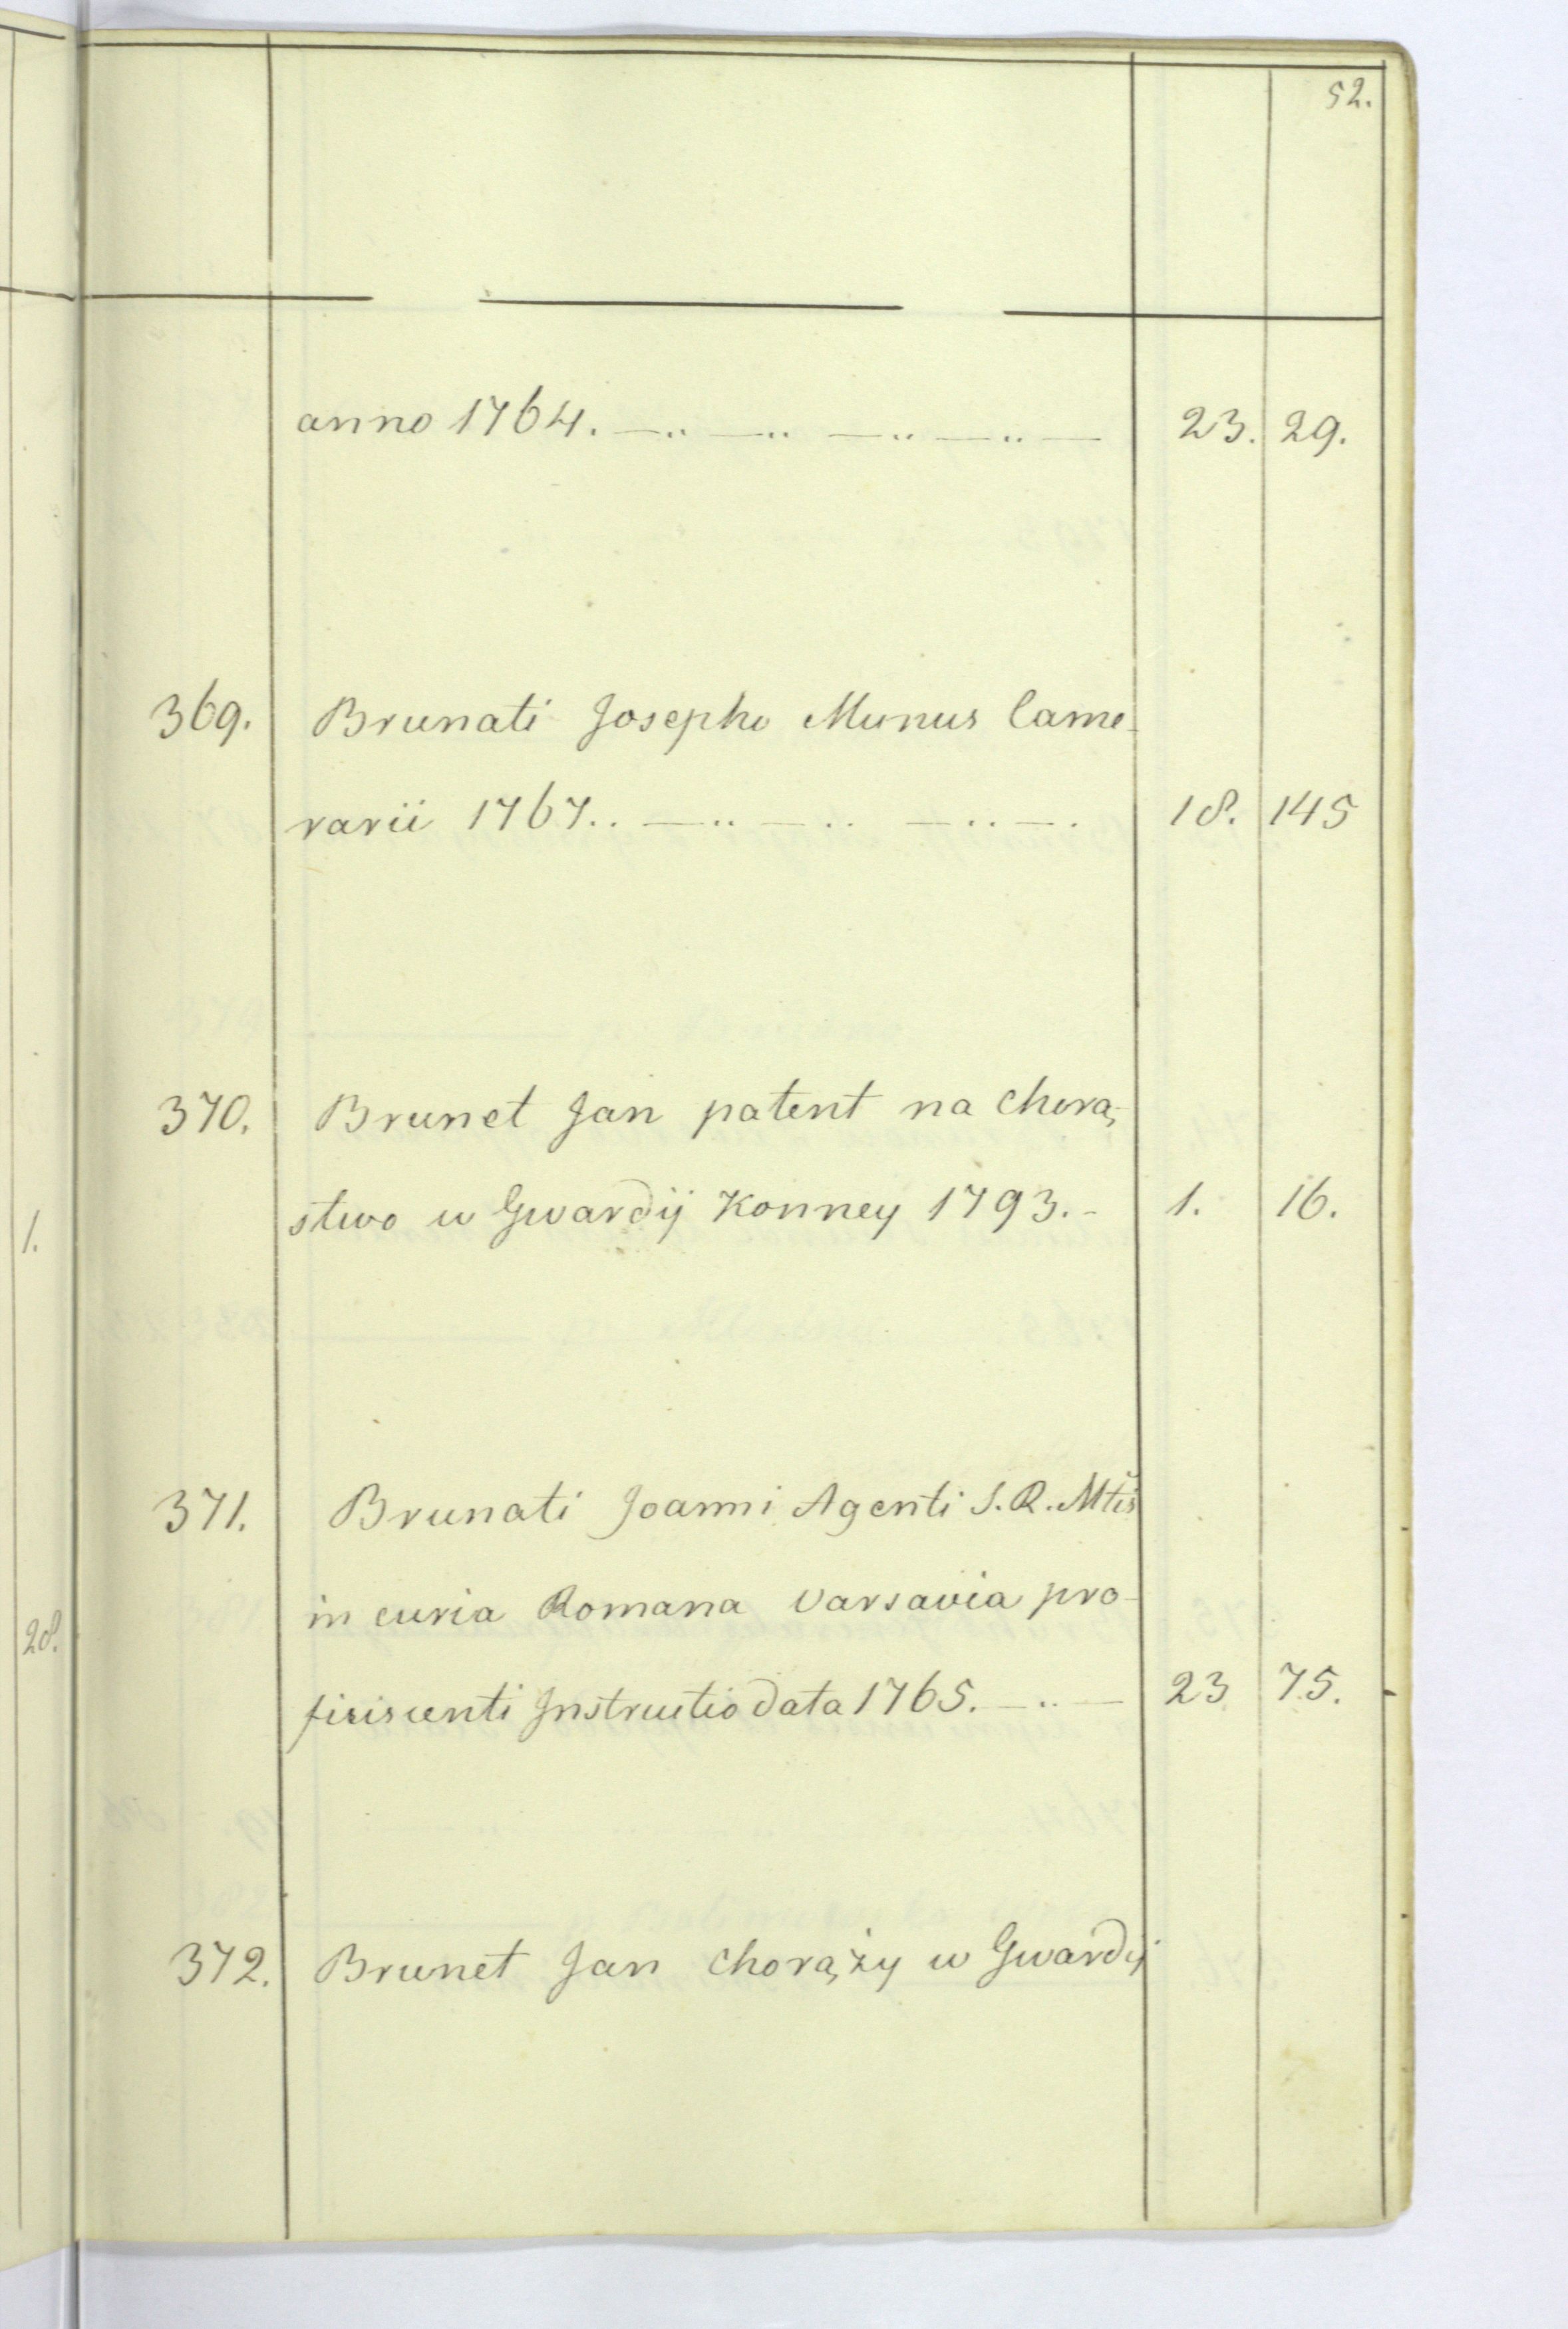 52.
anno 1764. —.. —.. —.. —.. — 23. 29.
369. Brunati Josepho Munus Came-
rarii 1767.. —.. —.. —.. —. 18. 145
370. Brunet Jan patent na Chorą-
stwo w Gwardÿ Konney 1793. - 1. 16.
371. Brunati Joanni Agenti S. R. Mtis
in curia Romana Varsavia pro-
ficiscenti Instructio data 1765. —.. — 23 75.
372. Brunet Jan Chorąży w Gwardÿ
1.
28.